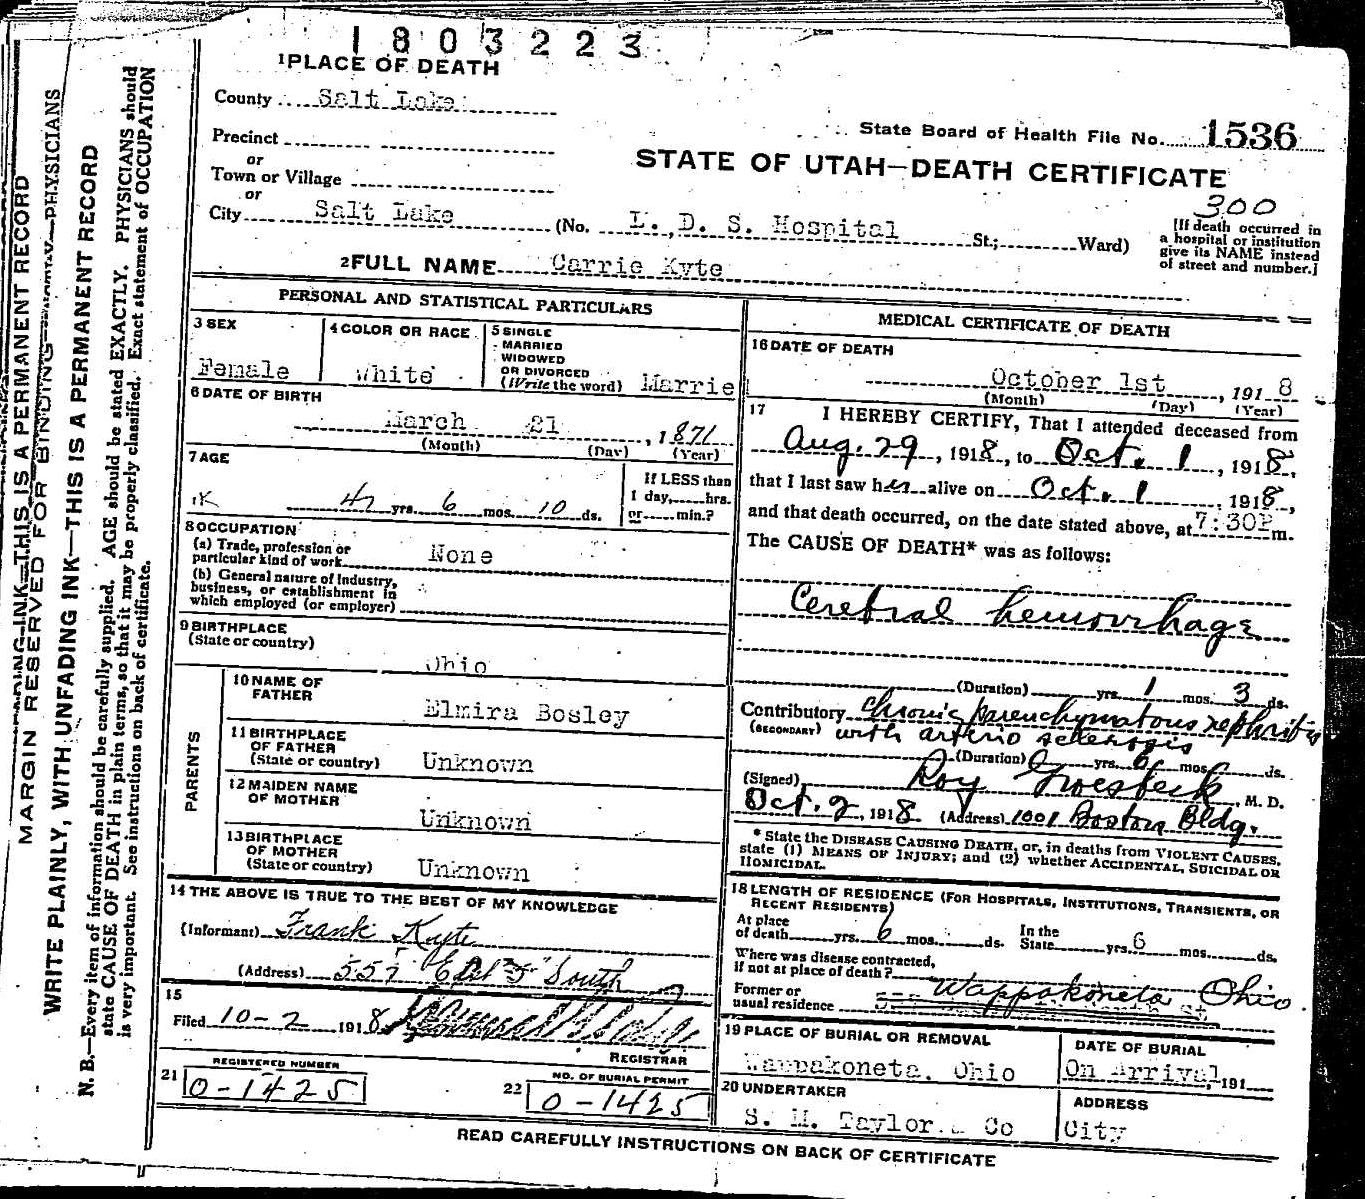 1803223
1 PLACE OF DEATH
County Salt Lake
State Board of Health File No. 1536
Precinct
or
STATE OF UTAH—DEATH CERTIFICATE
Town or Village
or
300
City Salt Lake (No. L. D. S. Hospital St.; Ward)
[If death occurred in
a hospital or institution
give its NAME instead
of street and number.]
2 FULL NAME Carrie Kyte
PERSONAL AND STATISTICAL PARTICULARS
3 SEX
Female
4 COLOR OR RACE
White
5 SINGLE
MARRIED
WIDOWED
OR DIVORCED
(Write the word) Marrie
6 DATE OF BIRTH
March 21, 1871
(Month) (Day) (Year)
7 AGE
47 yrs. 6 mos. 10 ds.
If LESS than
1 day, hrs.
or min.?
8 OCCUPATION
(a) Trade, profession or
particular kind of work None
(b) General nature of Industry,
business, or establishment in
which employed (or employer)
9 BIRTHPLACE
(State or country)
Ohio
PARENTS
10 NAME OF
FATHER
Elmira Bosley
11 BIRTHPLACE
OF FATHER
(State or country) Unknown
12 MAIDEN NAME
OF MOTHER
Unknown
13 BIRTHPLACE
OF MOTHER
(State or country) Unknown
14 THE ABOVE IS TRUE TO THE BEST OF MY KNOWLEDGE
(Informant) Frank Kyte
(Address) 557 East 5" South
15
Filed 10-2 1918
REGISTRAR
REGISTERED NUMBER
21 0-1425
NO. OF BURIAL PERMIT
22 0-1425
MEDICAL CERTIFICATE OF DEATH
16 DATE OF DEATH
October 1st, 1918
(Month) (Day) (Year)
17 I HEREBY CERTIFY, That I attended deceased from
Aug. 29, 1918, to Oct. 1, 1918,
that I last saw her alive on Oct. 1, 1918,
and that death occurred, on the date stated above, at 7:30P m.
The CAUSE OF DEATH* was as follows:
Cerebral hemorrhage
(Duration) yrs. 1 mos. 3 ds.
Contributory Chronic parenchymatous nephritis
(SECONDARY) with arterio sclerosis
(Duration) yrs. 6 mos. ds.
(Signed) Roy Groesbeck, M. D.
Oct. 2, 1918 (Address) 1001 Boston Bldg.
* State the DISEASE CAUSING DEATH, or, in deaths from VIOLENT CAUSES,
state (1) MEANS OF INJURY; and (2) whether ACCIDENTAL, SUICIDAL OR
HOMICIDAL.
18 LENGTH OF RESIDENCE (FOR HOSPITALS, INSTITUTIONS, TRANSIENTS, OR
RECENT RESIDENTS)
At place
of death yrs. 6 mos. ds.
In the
State yrs. 6 mos. ds.
Where was disease contracted,
if not at place of death?
Former or
usual residence Wappakoneta Ohio
19 PLACE OF BURIAL OR REMOVAL
Wappakoneta, Ohio
DATE OF BURIAL
On Arrival, 191
20 UNDERTAKER
S. M. Taylor & Co
ADDRESS
City
READ CAREFULLY INSTRUCTIONS ON BACK OF CERTIFICATE
MARGIN RESERVED FOR BINDING
WRITE PLAINLY, WITH UNFADING INK—THIS IS A PERMANENT RECORD
N. B.—Every item of information should be carefully supplied. AGE should be stated EXACTLY. PHYSICIANS should
state CAUSE OF DEATH in plain terms, so that it may be properly classified. Exact statement of OCCUPATION
is very important. See instructions on back of certificate.